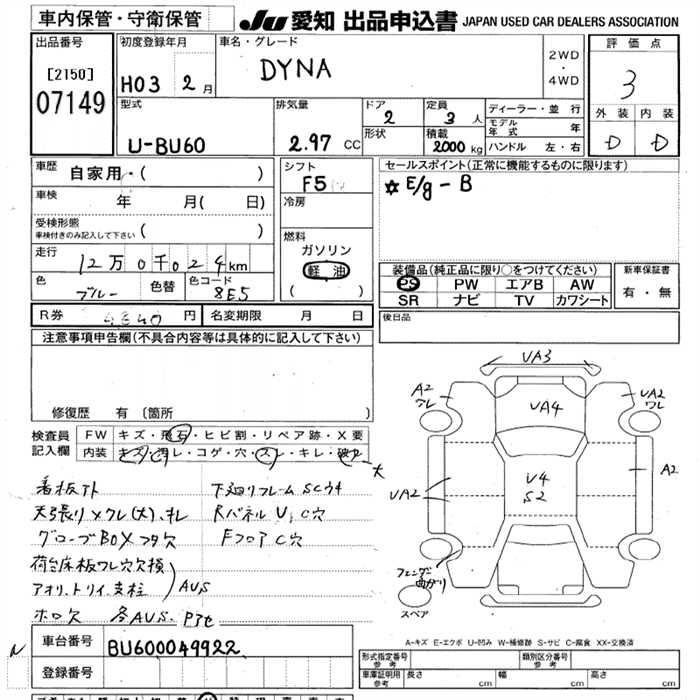 車内保管・守衛保管
JU 愛知 出品申込書 JAPAN USED CAR DEALERS ASSOCIATION
出品番号
[2150]
07149
初度登録年月
H03 2月
車名・グレード
DYNA
2WD
・
4WD
評価点
3
外装 内装
D D
型式
U-BU60
排気量
2.97 CC
ドア
2
定員
3 人
形状
積載
2000 kg
ディーラー・並行
モデル年式 年
ハンドル 左・右
車歴
自家用・( )
車検
年 月( 日)
受検形態
車検付きのみ記入して下さい ( )
走行
12万0千024km
色
ブルー
色替
色コード
8E5
シフト
F5
冷房
燃料
ガソリン
軽油
( )
セールスポイント(正常に機能するものに限ります)
☆E/g-B
装備品(純正品に限り○をつけてください)
PS PW エアB AW
SR ナビ TV カワシート
新車保証書
有・無
R券 円
名変期限 月 日
後日品
注意事項申告欄(不具合内容等は具体的に記入して下さい)
修復歴 有(箇所 )
検査員
記入欄
FW キズ・飛石・ヒビ割・リペア跡・X要
内装 キズ・汚レ・コゲ・穴・スレ・キレ・破レ 大
看板アト
天張リメクレ(大)、キレ
グローブBOXフタ欠
荷台床板ワレ穴欠損
アオリ.トリイ.支柱 AUS
ホロ欠 各AUS. Pアセ
下廻リフレームSCウキ
Rパネル U、C穴
FフロアC穴
UA3
A2
ワレ
UA4
UA2
ワレ
A2
UA2
U4
S2
フェンダー
曲がり
スペア
A-キズ E-エクボ U-凹み W-補修跡 S-サビ C-腐食 XX-交換済
N
車台番号
BU600049922
登録番号
形式指定番号
参考
類別区分番号
参考
車庫証明用
参考
長さ cm 幅 cm 高さ cm